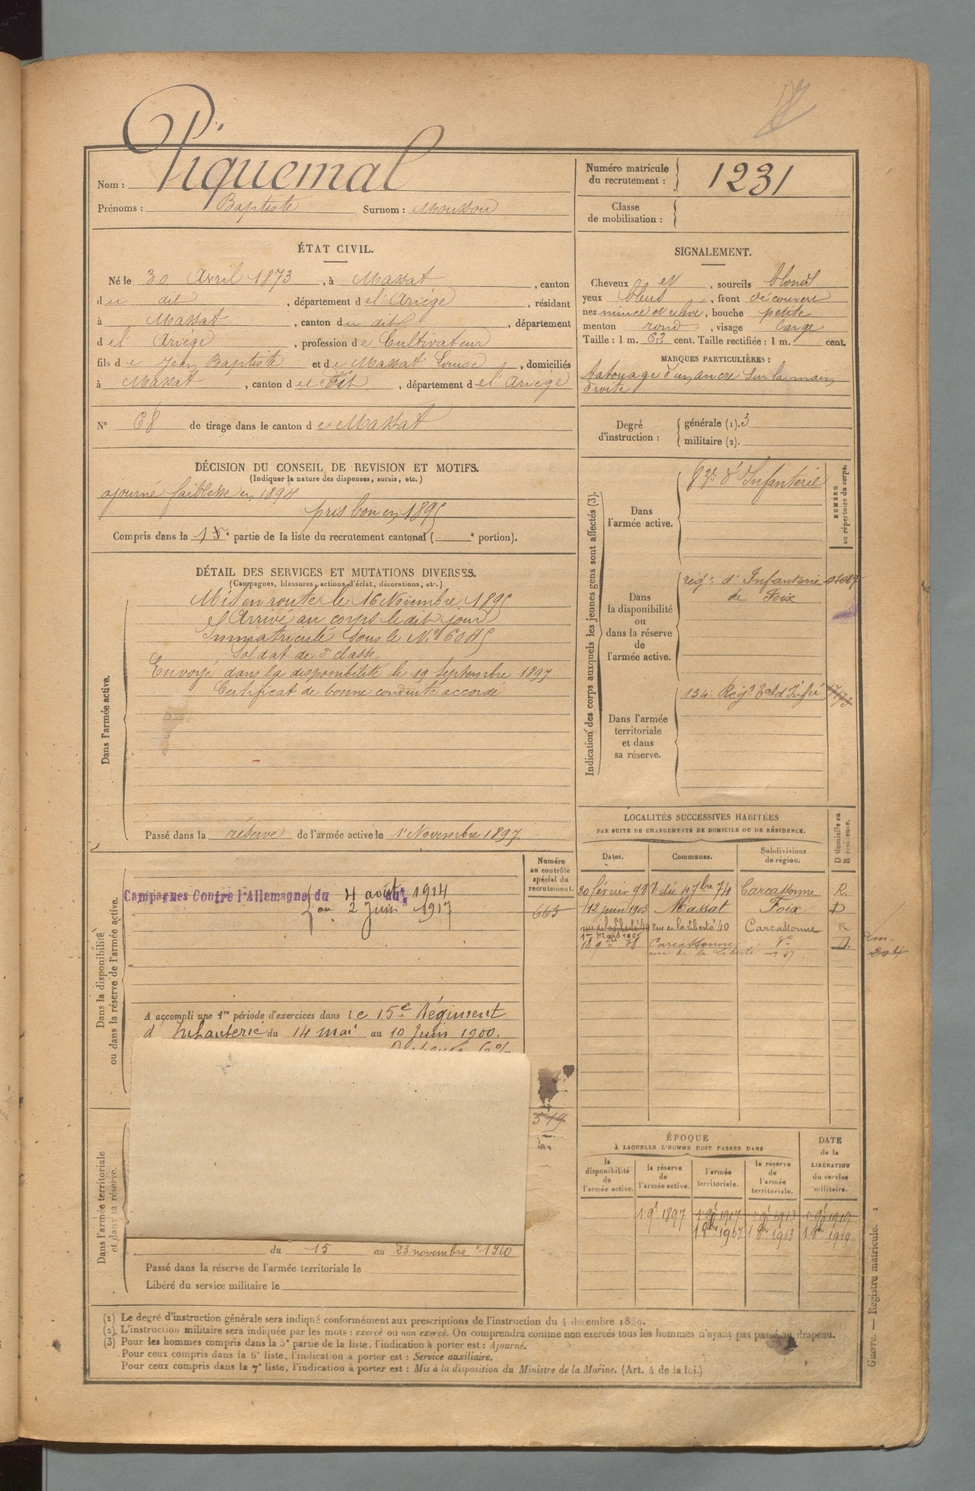 Piquemal
Nom :
Prénoms : Baptiste Surnom : Mouxou
Numéro matricule du recrutement : 1231
Classe de mobilisation :
ÉTAT CIVIL.
Né le 30 Avril 1873, à Massat, canton
du dit, département de l'Ariège, résidant
à Massat, canton du dit, département
de l'Ariège, profession de Cultivateur
fils de Jean Baptiste et de Massat Louise, domiciliés
à Massat, canton de dit, département de l'Ariège
N° 68 de tirage dans le canton de Massat
DÉCISION DU CONSEIL DE REVISION ET MOTIFS.
(Indiquer la nature des dispenses, sursis, etc.)
ajourné faiblesse en 1894
pris bon en 1895
Compris dans la 1re partie de la liste du recrutement cantonal ( e portion).
DÉTAIL DES SERVICES ET MUTATIONS DIVERSES.
(Campagnes, blessures, actions d'éclat, décorations, etc.)
Dans l'armée active.
Mis en route le 16 Novembre 1895
et Arrivé au corps le dit jour
Immatriculé sous le N°
Soldat de 2e classe
Envoyé dans la disponibilité le 19 Septembre 1897
Certificat de bonne conduite accordé
Passé dans la réserve de l'armée active le 1er Novembre 1897
Dans la disponibilité ou dans la réserve de l'armée active.
Numéro au contrôle spécial du recrutement.
Campagnes Contre l'Allemagne du 4 août 1914
au 2 Juin 1917
663
A accompli une 1re période d'exercices dans le 15e Régiment
d'Infanterie du 14 mai au 10 Juin 1900.
519
Dans l'armée territoriale et dans sa réserve.
du 15 au 23 novembre 1910
Passé dans la réserve de l'armée territoriale le
Libéré du service militaire le
SIGNALEMENT.
Cheveux et, sourcils blonds
yeux bleus, front découvert
nez mince et, bouche petite
menton rond, visage large
Taille : 1 m. 63 cent. Taille rectifiée : 1 m. cent.
MARQUES PARTICULIÈRES :
tatouage d'un ancre sur la main
droite
Degré d'instruction : générale (1). 3
militaire (2).
Indication des corps auxquels les jeunes gens sont affectés (3).
NUMÉRO au répertoire du corps.
Dans l'armée active.
d'Infanterie
Dans la disponibilité ou dans la réserve de l'armée active.
rég. d'Infanterie
de Foix
Dans l'armée territoriale et dans sa réserve.
134e Rég. d'Infie
LOCALITÉS SUCCESSIVES HABITÉES
PAR SUITE DE CHANGEMENTS DE DOMICILE OU DE RÉSIDENCE.
Dates. Communes. Subdivisions de région. D domicile ou R résidence.
20 février 98 Carcassonne R
12 Juin 1903 Massat Foix D
Rue de la Liberté 40 Carcassonne R
Carcassonne D
rue de la Liberté 37
ÉPOQUE
À LAQUELLE L'HOMME DOIT PASSER DANS
DATE de la LIBÉRATION du service militaire.
la disponibilité de l'armée active. la réserve de l'armée active. l'armée territoriale. la réserve de l'armée territoriale.
(1) Le degré d'instruction générale sera indiqué conformément aux prescriptions de l'instruction du 4 décembre 1889.
(2) L'instruction militaire sera indiquée par les mots : exercé ou non exercé. On comprendra comme non exercés tous les hommes n'ayant pas passé au drapeau.
(3) Pour les hommes compris dans la 5e partie de la liste, l'indication à porter est : Ajourné.
Pour ceux compris dans la 6e liste, l'indication à porter est : Service auxiliaire.
Pour ceux compris dans la 7e liste, l'indication à porter est : Mis à la disposition du Ministre de la Marine. (Art. 4 de la loi.)
Guerre. — Registre matricule. 1